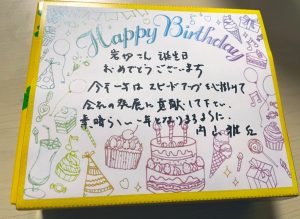 Happy Birthday
岩切さん 誕生日
おめでとうございます
今年一年はスピードアップを心掛けて
会社の発展に貢献して下さい。
素晴らしい一年となりますように。
内山雅